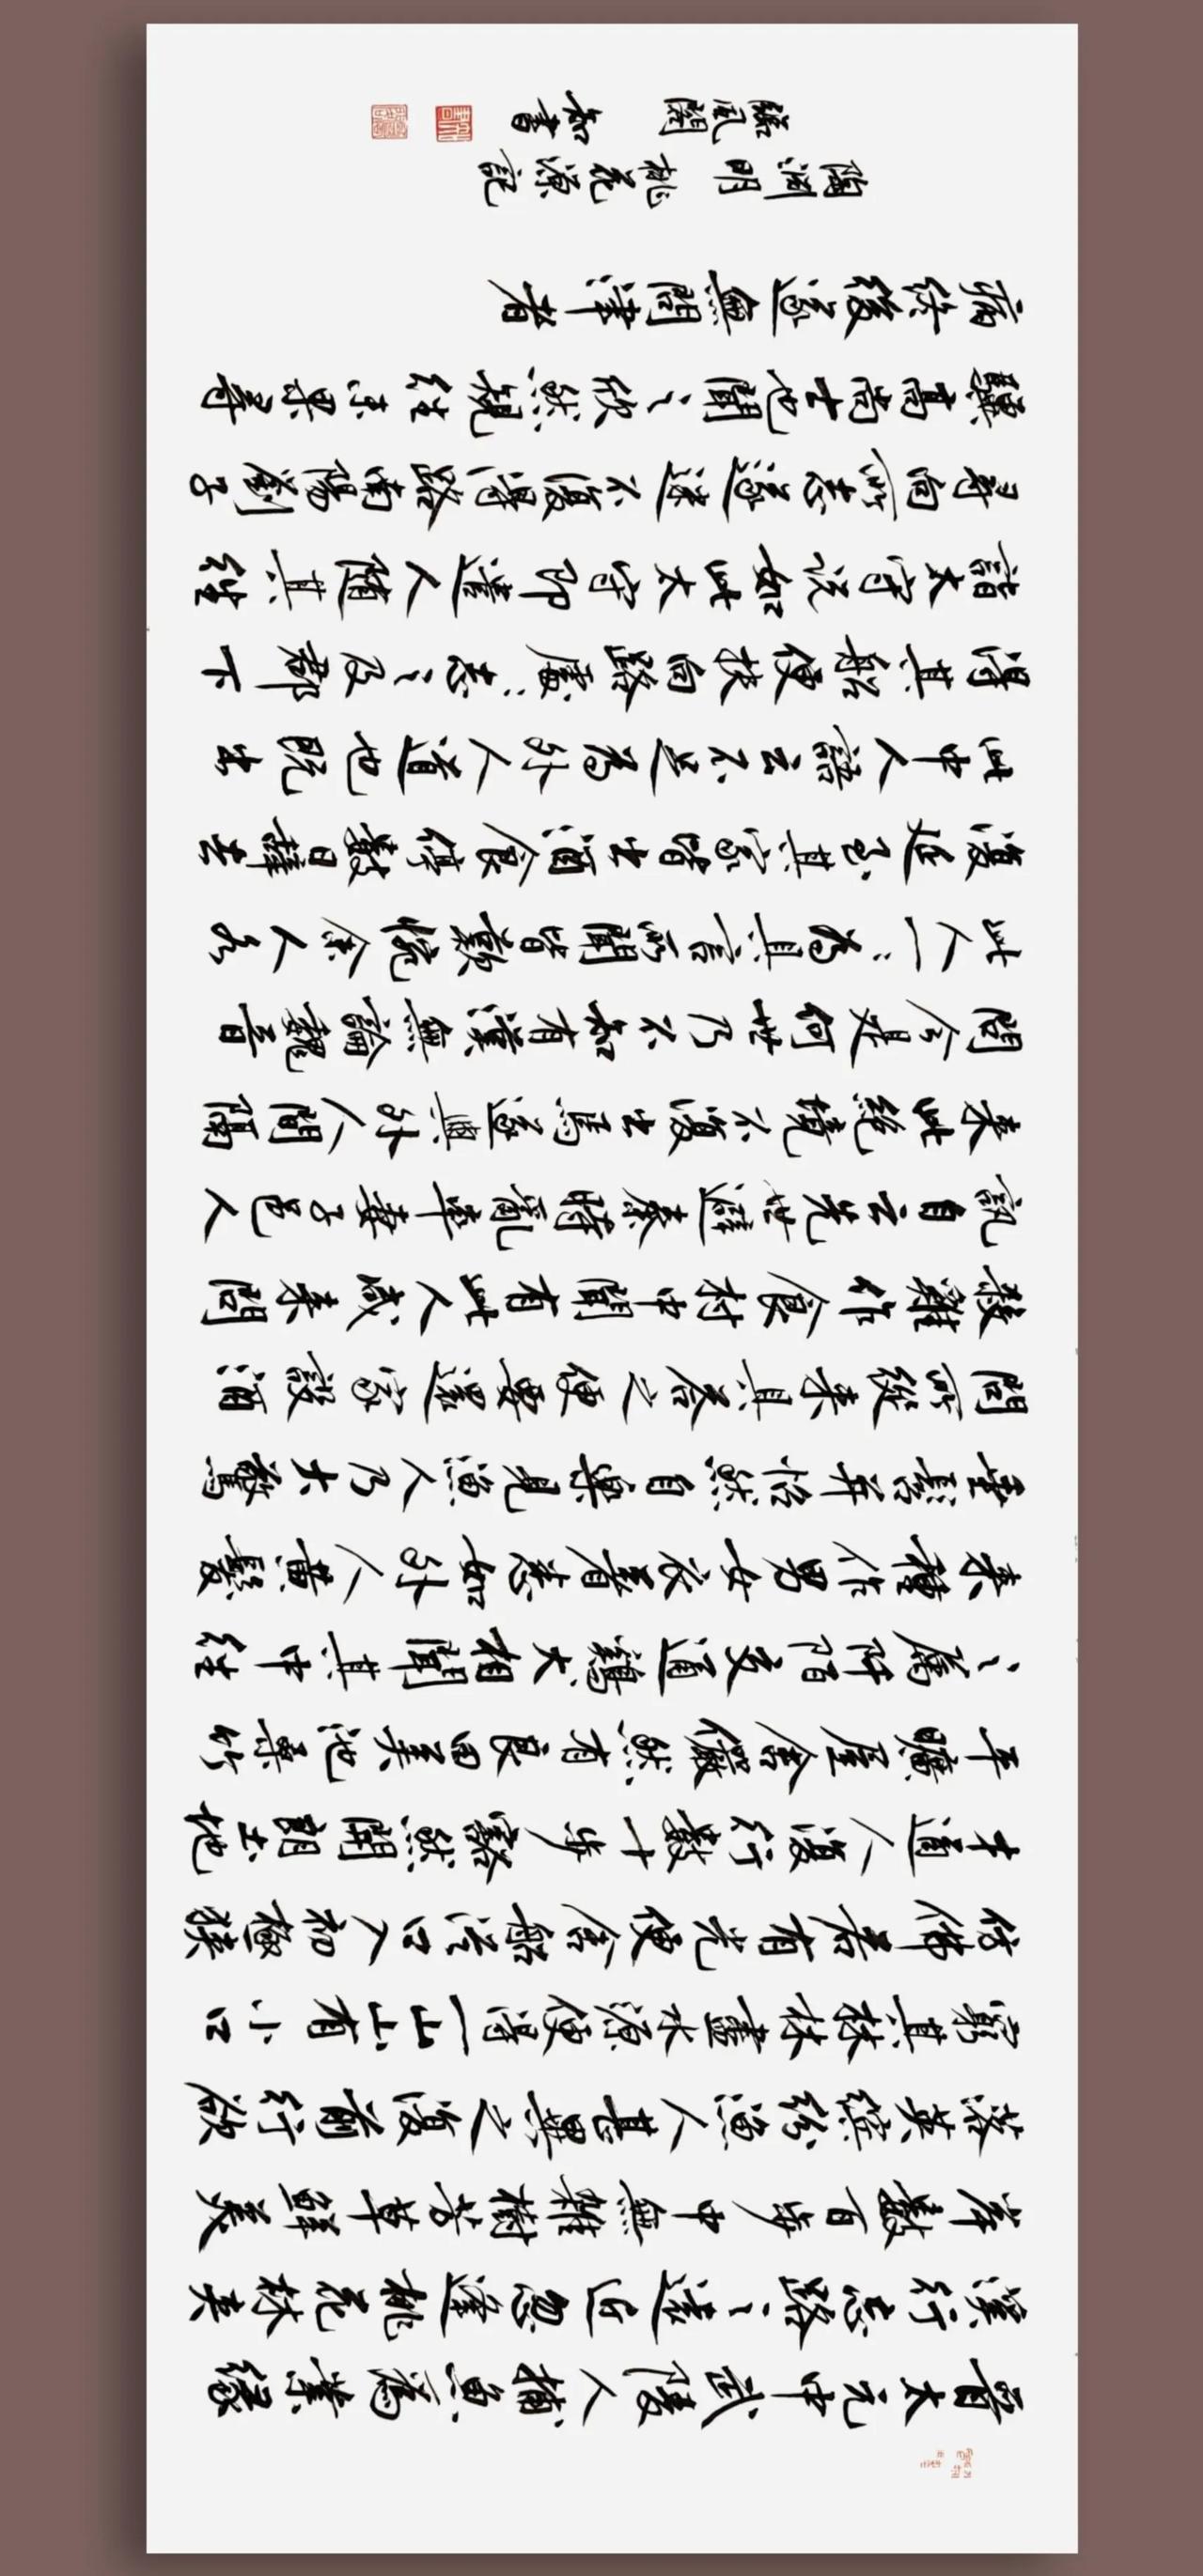 晉太元中武陵人捕魚為業緣
溪行忘路〻遠近忽逢桃花林夹
岸數百步中無雜樹芳草鮮美
落英繽紛漁人甚異之復前行欲
窮其林林盡水源便得一山山有小口
仿佛若有光便舍船從口入初極狹
才通人復行數十步豁然開朗土地
平曠屋舍儼然有良田美池桑竹
〻屬阡陌交通鷄犬相聞其中往
来種作男女衣着悉如外人黄髮
垂髫并怡然自樂見漁人乃大驚
問所從来具答之便要還家設酒
殺雞作食村中聞有此人咸来問
訊自云先世避秦時亂率妻子邑人
来此絶境不復出焉遂與外人間隔
問今是何世乃不知有漢無論魏晉
此人一〻為具言所聞皆歎惋余人各
復延至其家皆出酒食停數日辭去
此中人語云不足為外人道也既出
得其船便扶向路處〻志〻及郡下
詣太守説如此太守即遣人隨其往
尋向所志遂迷不復得路南陽劉子
驥高尚士也聞〻欣然規往未果尋
病終後遂無問津者
陶渊明桃花源記
臨風閣 知書